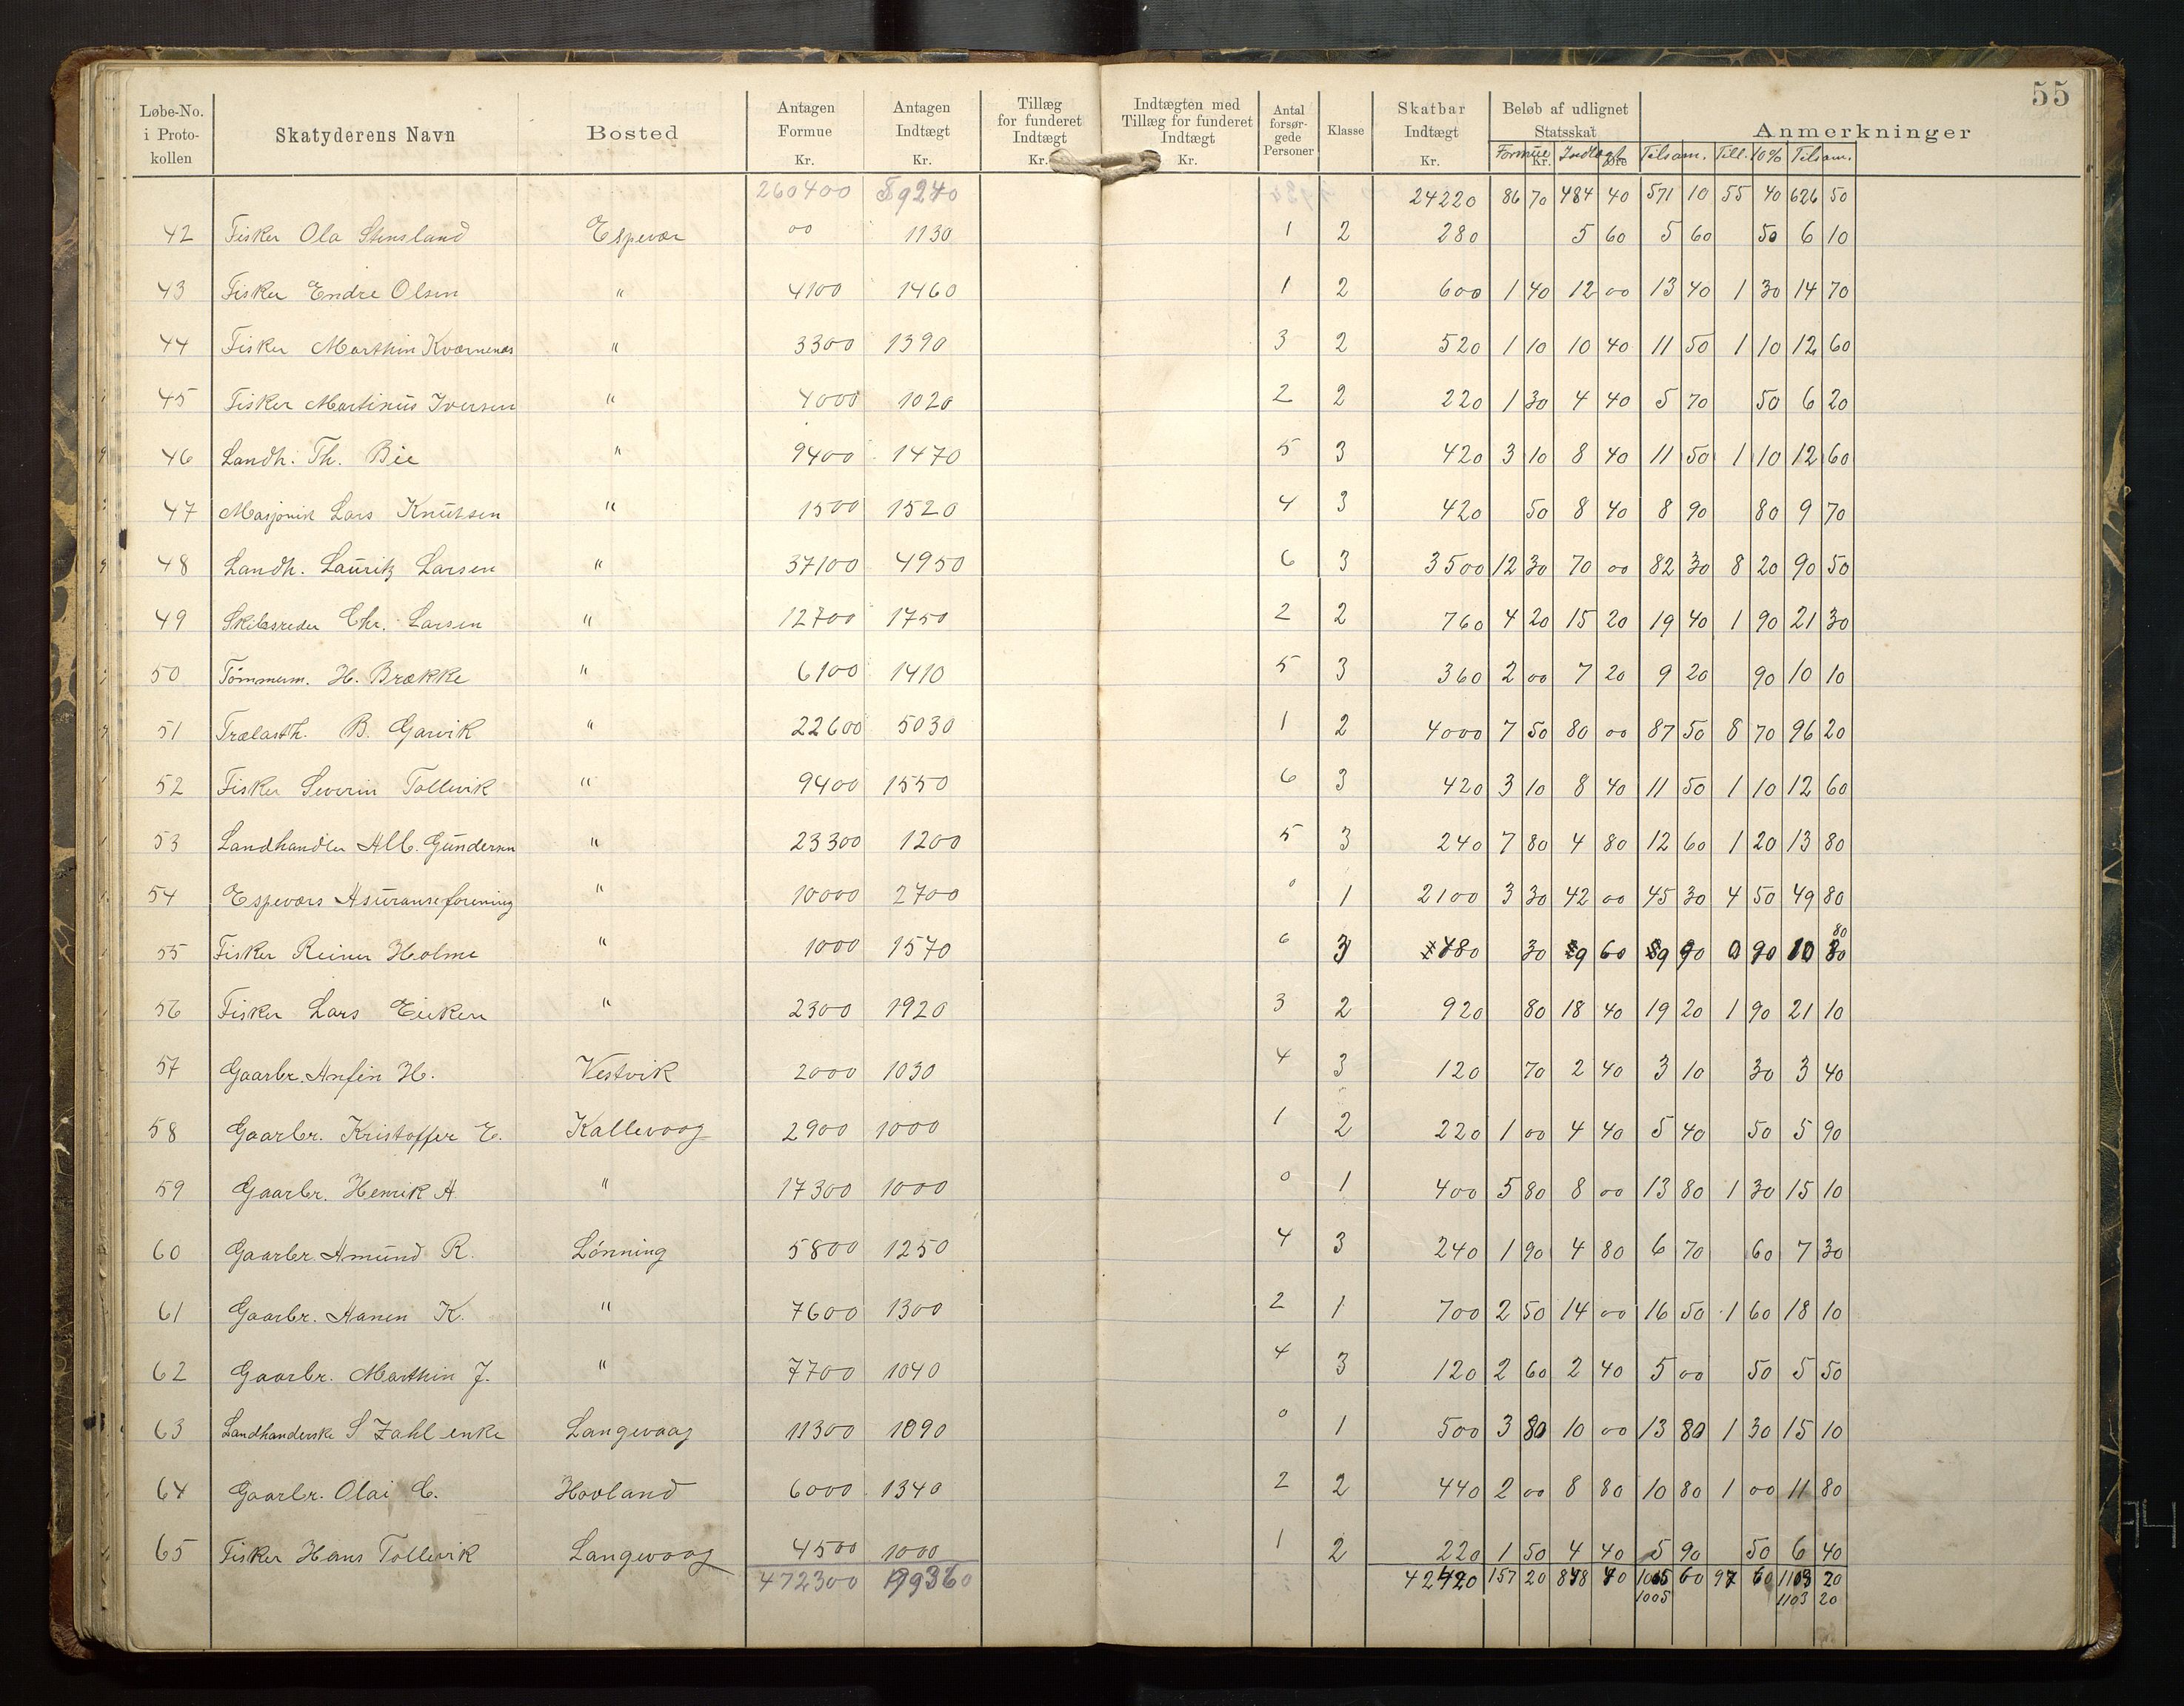 55
Løbe-No. i Protokollen | Skatyderens Navn | Bosted | Antagen Formue Kr. | Antagen Indtægt Kr. | Tillæg for funderet Indtægt Kr. | Indtægten med Tillæg for funderet Indtægt Kr. | Antal forsørgede Personer | Klasse | Skatbar Indtægt Kr. | Beløb af udlignet Statsskat Kr. Øre | Anmerkninger
Formue Indtægt Tilsam. Till. 10% Tilsam.
260400 59240 24220 86 70 484 40 571 10 55 40 626 50
42 Fisker Ola Stensland Espevær 00 1130 1 2 280 5 60 5 60 50 6 10
43 Fisker Endre Olsen " 4100 1460 1 2 600 1 40 12 00 13 40 1 30 14 70
44 Fisker Marthin Kværnenæs " 3300 1390 3 2 520 1 10 10 40 11 50 1 10 12 60
45 Fisker Martinus Iversen " 4000 1020 2 2 220 1 30 4 40 5 70 50 6 20
46 Landh. Th. Bie " 9400 1470 5 3 420 3 10 8 40 11 50 1 10 12 60
47 Lars Knutsen " 1500 1520 4 3 420 50 8 40 8 90 80 9 70
48 Landh. Lauritz Larsen " 37100 4950 6 3 3500 12 30 70 00 82 30 8 20 90 50
49 Skibsreder Chr. Larsen " 12700 1750 2 2 760 4 20 15 20 19 40 1 90 21 30
50 Tømmerm. H. Brække " 6100 1410 5 3 360 2 00 7 20 9 20 90 10 10
51 Trælasth. B. Garvik " 22600 5030 1 2 4000 7 50 80 00 87 50 8 70 96 20
52 Fisker Severin Tollevik " 9400 1550 6 3 420 3 10 8 40 11 50 1 10 12 60
53 Landhandler Alb. Gundersen " 23300 1200 5 3 240 7 80 4 80 12 60 1 20 13 80
54 Espeværs Asuranseforening " 10000 2700 0 1 2100 3 30 42 00 45 30 4 50 49 80
55 Fisker Reiner Holme " 1000 1570 6 3 480 30 9 60 9 90 0 90 10 80
56 Fisker Lars Eieken " 2300 1920 3 2 920 80 18 40 19 20 1 90 21 10
57 Gaarbr. Anfin H. Vestvik 2000 1030 4 3 120 70 2 40 3 10 30 3 40
58 Gaarbr. Kristoffer E. Kallevaag 2900 1000 1 2 220 1 00 4 40 5 40 50 5 90
59 Gaarbr. Henrik A " 17300 1000 0 1 400 5 80 8 00 13 80 1 30 15 10
60 Gaarbr. Amund R. Lønning 5800 1250 4 3 240 1 90 4 80 6 70 60 7 30
61 Gaarbr. Hanen K. " 7600 1300 2 1 700 2 50 14 00 16 50 1 60 18 10
62 Gaarbr. Marthin J. " 7700 1040 4 3 120 2 60 2 40 5 00 50 5 50
63 Landhanderske S Zahl enke Langevaag 11300 1090 0 1 500 3 80 10 00 13 80 1 30 15 10
64 Gaarbr. Olai C. Hovland 6000 1340 2 2 440 2 00 8 80 10 80 1 00 11 80
65 Fisker Hans Tollevik Langevaag 4500 1000 1 2 220 1 50 4 40 5 90 50 6 40
472300 99360 42420 157 20 848 40 1005 60 97 60 1103 20
1005 1103 20